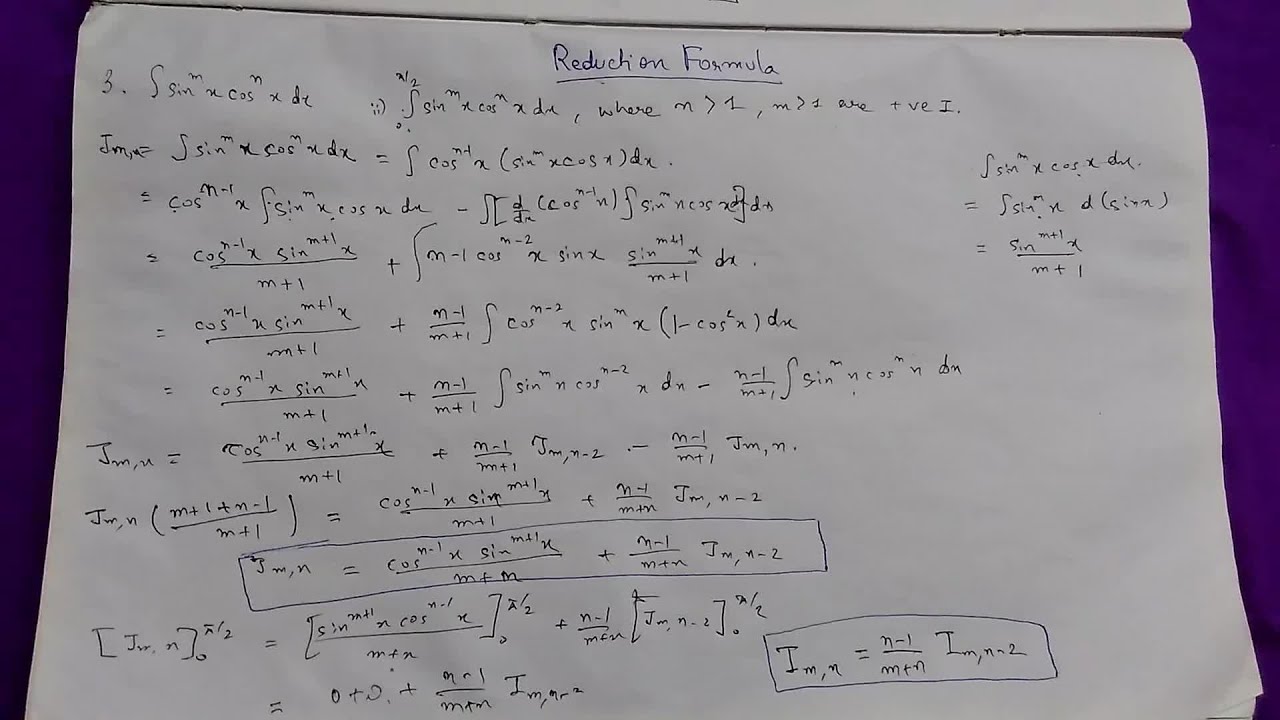 Reduction Formula
3. ∫ sin^m x cos^n x dx    ii) ∫_0^{π/2} sin^m x cos^n x dx, where n > 1, m > 1 are +ve I.
J_{m,n} = ∫ sin^m x cos^n x dx = ∫ cos^{n-1} x (sin^m x cos x) dx.
= cos^{n-1} x ∫ sin^m x cos x dx - ∫[d/dx (cos^{n-1} x) ∫ sin^m x cos x dx] dx
= cos^{n-1} x sin^{m+1} x / m+1 + ∫ n-1 cos^{n-2} x sin x sin^{m+1} x / m+1 dx.
= cos^{n-1} x sin^{m+1} x / m+1 + n-1/m+1 ∫ cos^{n-2} x sin^m x (1-cos² x) dx
= cos^{n-1} x sin^{m+1} x / m+1 + n-1/m+1 ∫ sin^m x cos^{n-2} x dx - n-1/m+1 ∫ sin^m x cos^n x dx
J_{m,n} = cos^{n-1} x sin^{m+1} x / m+1 + n-1/m+1 J_{m,n-2} - n-1/m+1 J_{m,n}.
J_{m,n} (m+1+n-1 / m+1) = cos^{n-1} x sin^{m+1} x / m+1 + n-1/m+n J_{m,n-2}
J_{m,n} = cos^{n-1} x sin^{m+1} x / m+n + n-1/m+n J_{m,n-2}
[J_{m,n}]_0^{π/2} = [sin^{m+1} x cos^{n-1} x / m+n]_0^{π/2} + n-1/m+n [J_{m,n-2}]_0^{π/2}
= 0+0 + n-1/m+n I_{m,n-2}
∫ sin^m x cos x dx.
= ∫ sin^m x d(sin x)
= sin^{m+1} x / m+1
I_{m,n} = n-1/m+n I_{m,n-2}